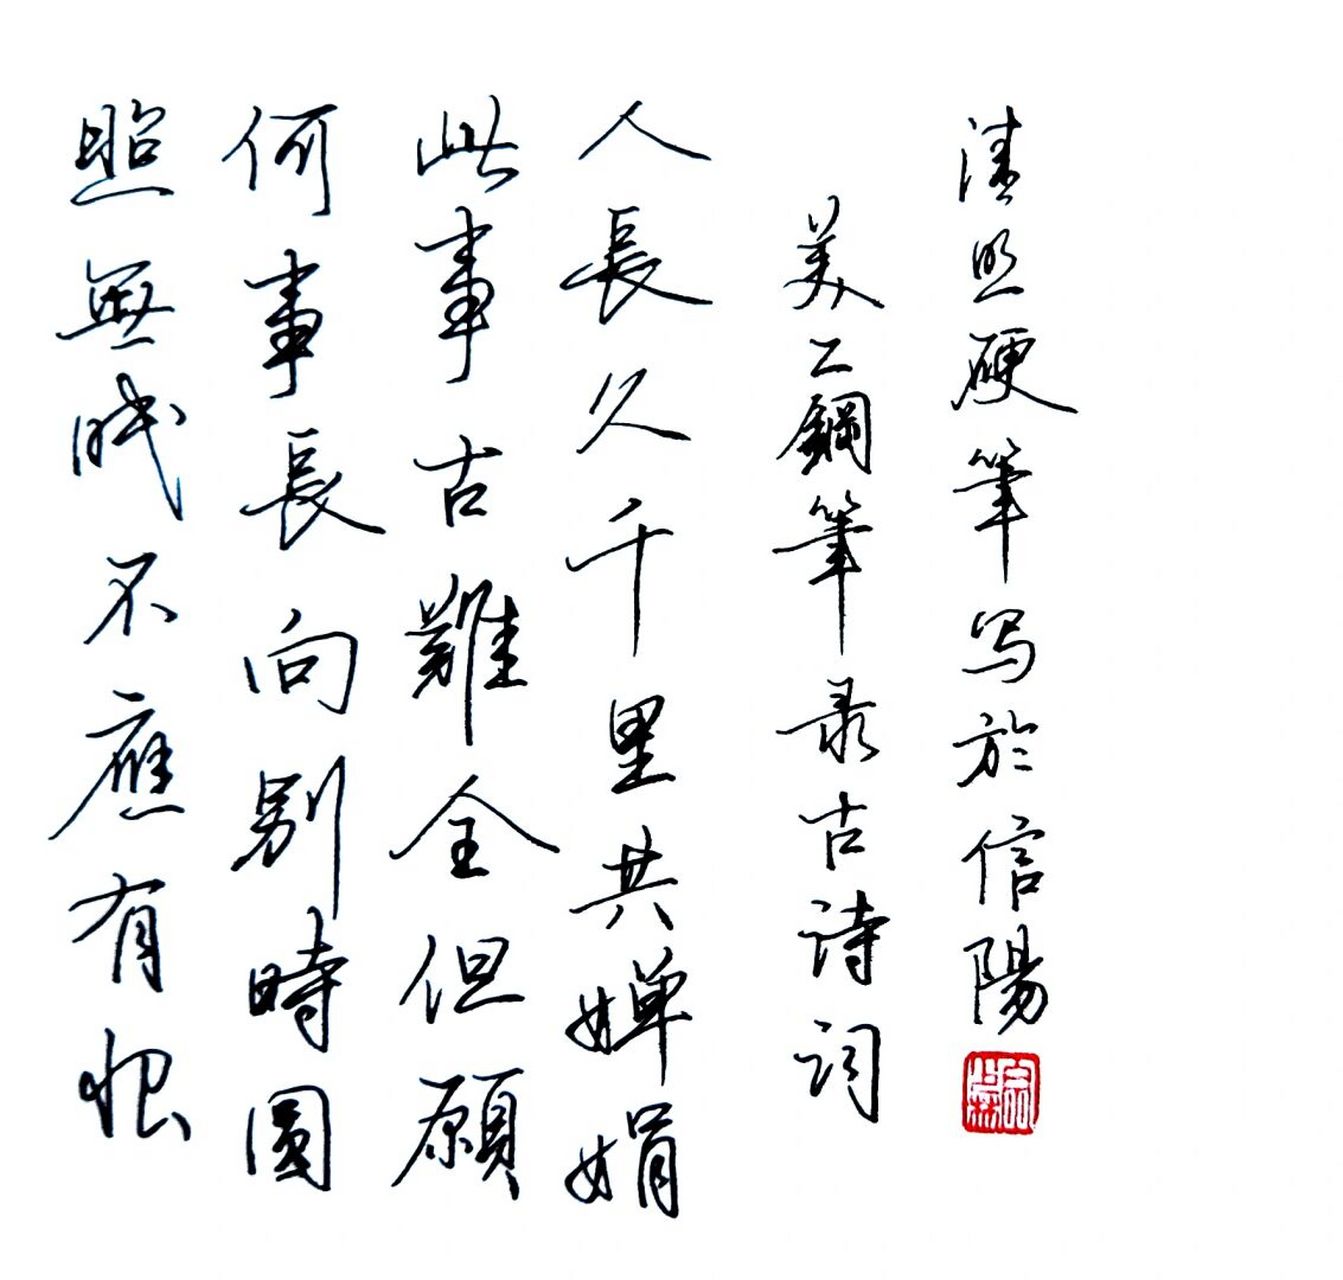 照無眠不應有恨
何事長向别時圓
此事古難全但願
人長久千里共婵娟
美工鋼筆录古诗词
清照硬筆写於信陽